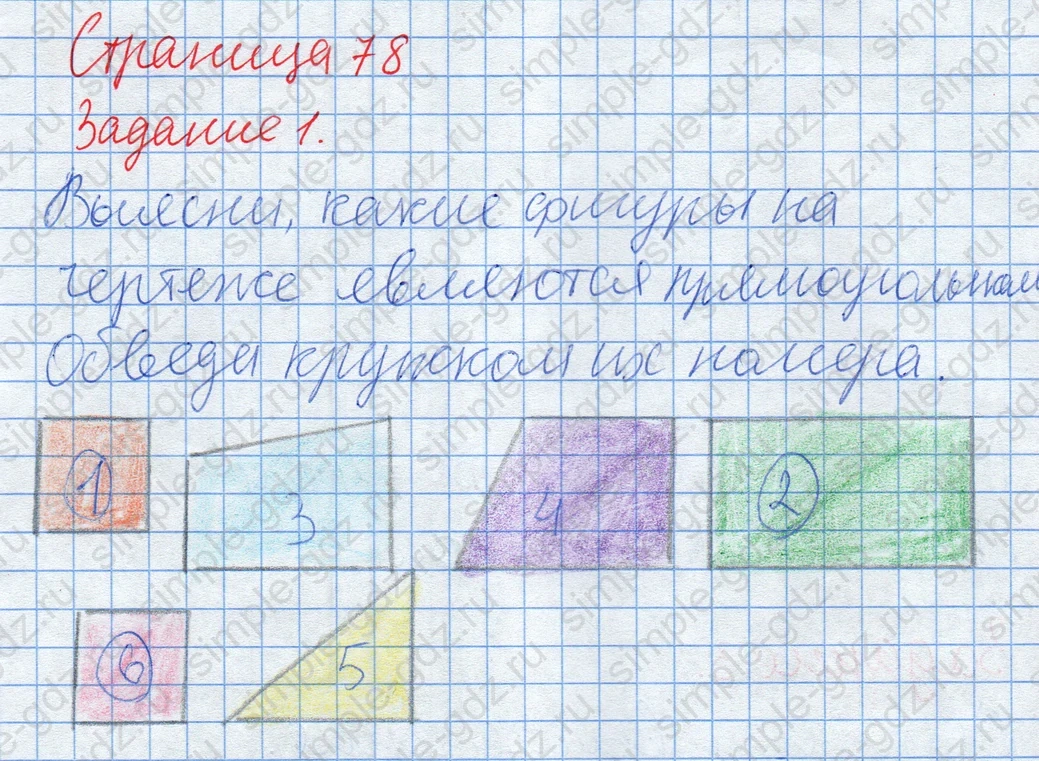 Страница 78
Задание 1.
Выясни, какие фигуры на
чертеже являются прямоугольникам
Обведи кружком их номера.
1
3
4
2
6
5
simple-gdz.ru